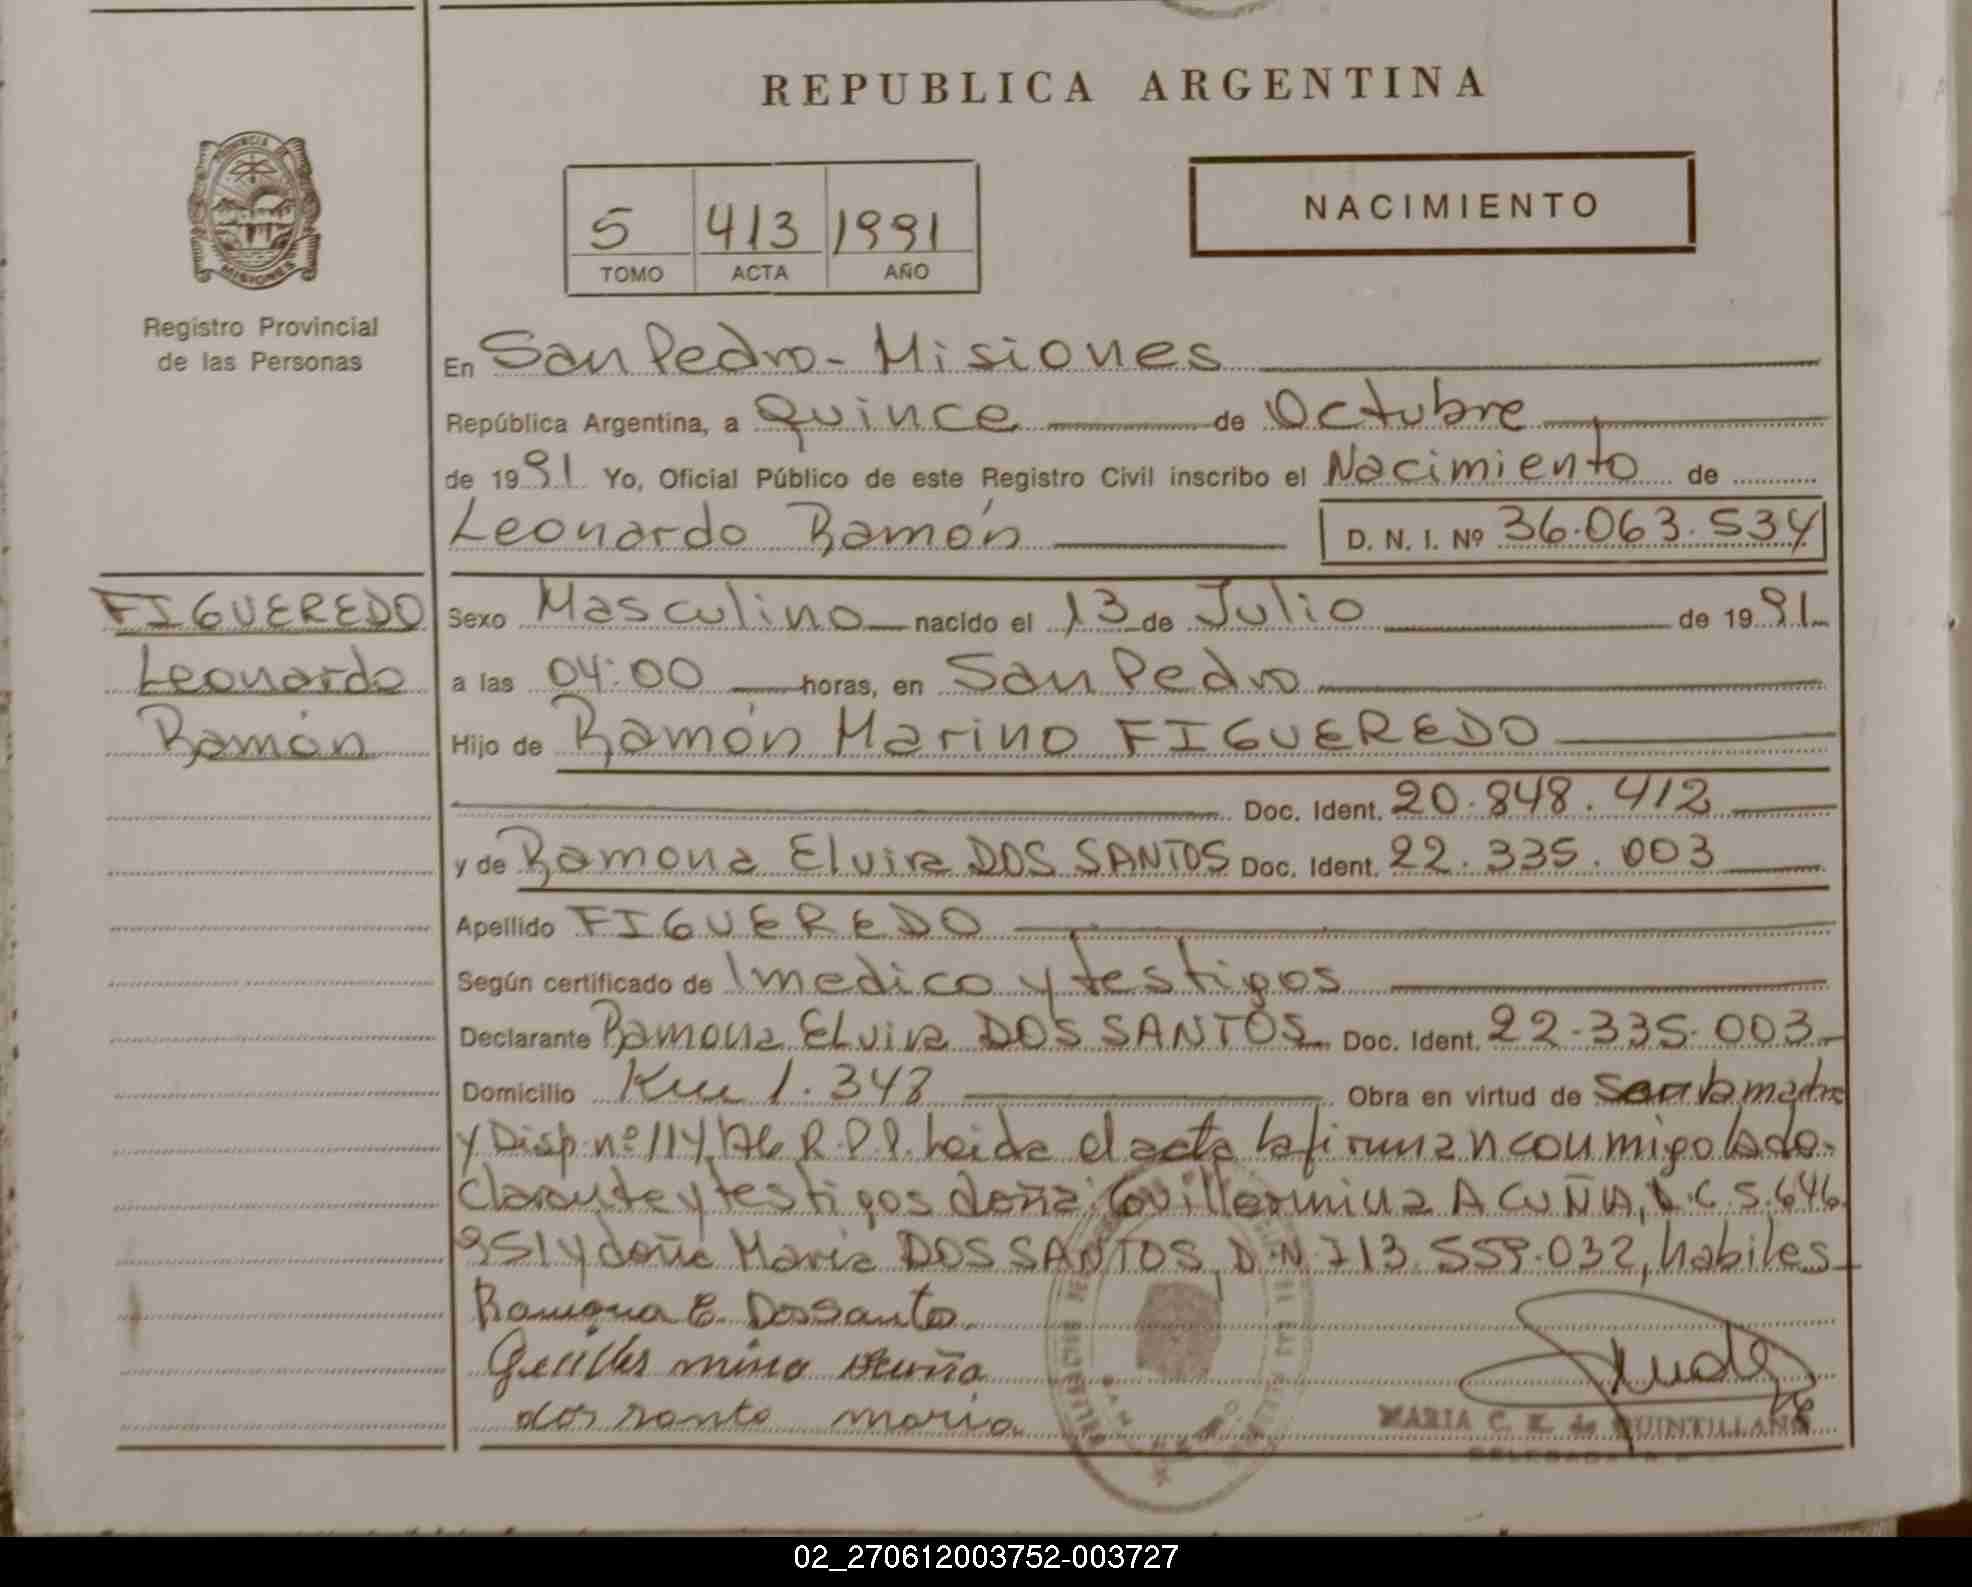 REPUBLICA ARGENTINA
PROVINCIA
MISIONES
Registro Provincial
de las Personas
5 413 1991
TOMO ACTA AÑO
NACIMIENTO
En San Pedro - Misiones
República Argentina, a quince de Octubre
de 1991 Yo, Oficial Público de este Registro Civil inscribo el Nacimiento de
Leonardo Ramón D. N. I. Nº 36.063.534
FIGUEREDO
Leonardo
Ramón
Sexo Masculino nacido el 13 de Julio de 1991
a las 04:00 horas, en San Pedro
Hijo de Ramón Marino FIGUEREDO
Doc. Ident. 20.848.412
y de Ramona Elvira DOS SANTOS Doc. Ident. 22.335.003
Apellido FIGUEREDO
Según certificado de medico y testigos
Declarante Ramona Elvira DOS SANTOS Doc. Ident. 22.335.003
Domicilio Km 1.343 Obra en virtud de ser la madre
y Disp. nº 114/76 R.P.P. leida el acta la firman conmigo la de-
clarante y testigos doña Guillermina ACUÑA, L.C 5.646.
951 y doña Maria DOS SANTOS, D.N.I 13.559.032, habiles
Ramona E. Dos Santo
Guilles mina Acuña
dos santo maria
MARIA C. K. de QUINTILLAN